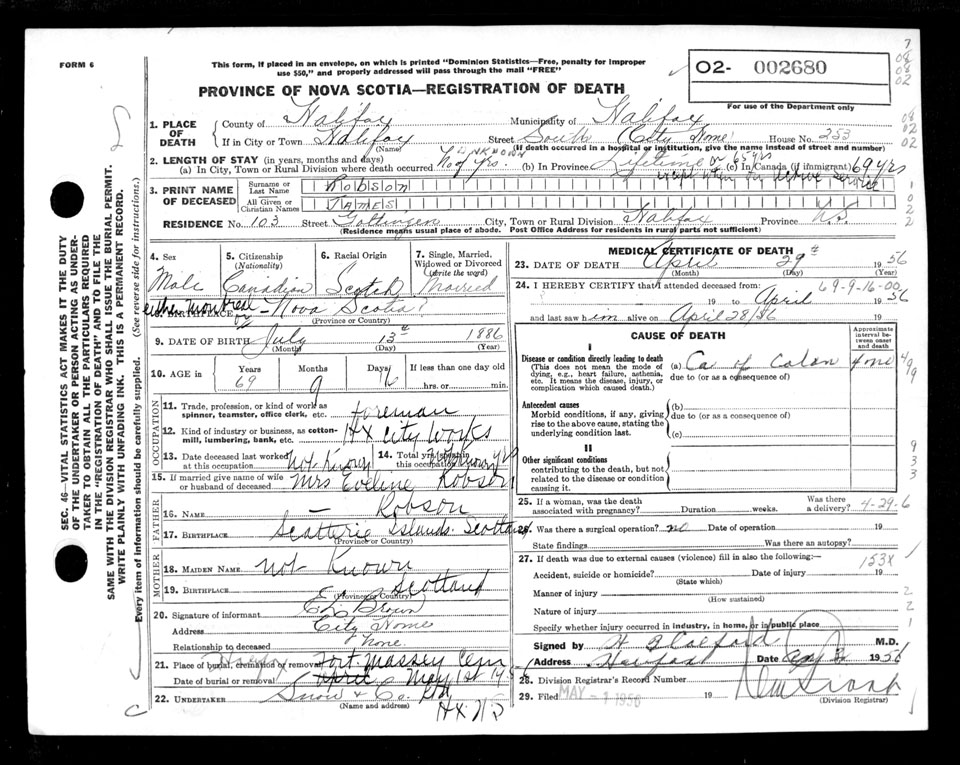 FORM 6
This form, if placed in an envelope, on which is printed "Dominion Statistics—Free, penalty for improper
use $50," and properly addressed will pass through the mail "FREE"
02- 002680
PROVINCE OF NOVA SCOTIA—REGISTRATION OF DEATH
For use of the Department only
1. PLACE OF DEATH
County of Halifax Municipality of Halifax
If in City or Town Halifax Street South (City Home) House No. 253
(Name) (If death occurred in a hospital or institution, give the name instead of street and number)
2. LENGTH OF STAY (in years, months and days)
(a) In City, Town or Rural Division where death occurred UNKNOWN No of yrs. (b) In Province Lifetime or 65 yrs (c) In Canada (if immigrant) 69 yrs
except when on active service
3. PRINT NAME OF DECEASED
Surname or Last Name Robson
All Given or Christian Names JAMES
RESIDENCE No. 103 Street Gottingen City, Town or Rural Division Halifax Province N.S.
(Residence means usual place of abode. Post Office Address for residents in rural parts not sufficient)
4. Sex
Male
5. Citizenship (Nationality)
Canadian
6. Racial Origin
Scotch
7. Single, Married, Widowed or Divorced (write the word)
Married
8. BIRTHPLACE either Montreal or Nova Scotia?
(Province or Country)
9. DATE OF BIRTH July 13th 1886
(Month) (Day) (Year)
10. AGE in Years Months Days If less than one day old
69 9 16 hrs. or min.
OCCUPATION
11. Trade, profession, or kind of work as spinner, teamster, office clerk, etc. foreman
12. Kind of industry or business, as cotton-mill, lumbering, bank, etc. HX City Works
13. Date deceased last worked at this occupation not known
14. Total yrs. spent in this occupation
15. If married give name of wife or husband of deceased Mrs Eveline Robson
FATHER
16. NAME — Robson
17. BIRTHPLACE Scatterie Islands Scotland
(Province or Country)
MOTHER
18. MAIDEN NAME not known
19. BIRTHPLACE Scotland
(Province or Country)
20. Signature of informant Brown
Address City Home
Relationship to deceased none
21. Place of burial, cremation or removal Fort Massey Cem
Date of burial or removal April May 1st
22. UNDERTAKER Snow & Co. Ltd
(Name and address) HX. NS
MEDICAL CERTIFICATE OF DEATH
23. DATE OF DEATH April 29th 1956
(Month) (Day) (Year)
24. I HEREBY CERTIFY that I attended deceased from: 69-9-16-00
19 to April 1956
and last saw him alive on April 28/56 19
CAUSE OF DEATH
Approximate interval between onset and death
I
Disease or condition directly leading to death
(This does not mean the mode of dying, e.g., heart failure, asthenia, etc. It means the disease, injury, or complication which caused death.)
(a) Ca of Colon 4 mo
due to (or as a consequence of)
Antecedent causes
Morbid conditions, if any, giving rise to the above cause, stating the underlying condition last.
(b)
due to (or as a consequence of)
(c)
II
Other significant conditions
contributing to the death, but not related to the disease or condition causing it.
25. If a woman, was the death associated with pregnancy? Duration weeks. Was there a delivery? 4-29-6
26. Was there a surgical operation? no Date of operation 19
State findings Was there an autopsy?
27. If death was due to external causes (violence) fill in also the following:— 153X
Accident, suicide or homicide? Date of injury 19
(State which)
Manner of injury
(How sustained)
Nature of injury
Specify whether injury occurred in industry, in home, or in public place
Signed by M.D.
Address Halifax Date 1956
28. Division Registrar's Record Number
29. Filed MAY -1 1956 19
(Division Registrar)
SEC. 46—VITAL STATISTICS ACT MAKES IT THE DUTY
OF THE UNDERTAKER OR PERSON ACTING AS UNDER-
TAKER TO OBTAIN ALL THE PARTICULARS REQUIRED
IN THE "REGISTRATION OF DEATH" AND TO FILE THE
SAME WITH THE DIVISION REGISTRAR WHO SHALL ISSUE THE BURIAL PERMIT.
WRITE PLAINLY WITH UNFADING INK. THIS IS A PERMANENT RECORD.
Every item of information should be carefully supplied. (See reverse side for instructions.)